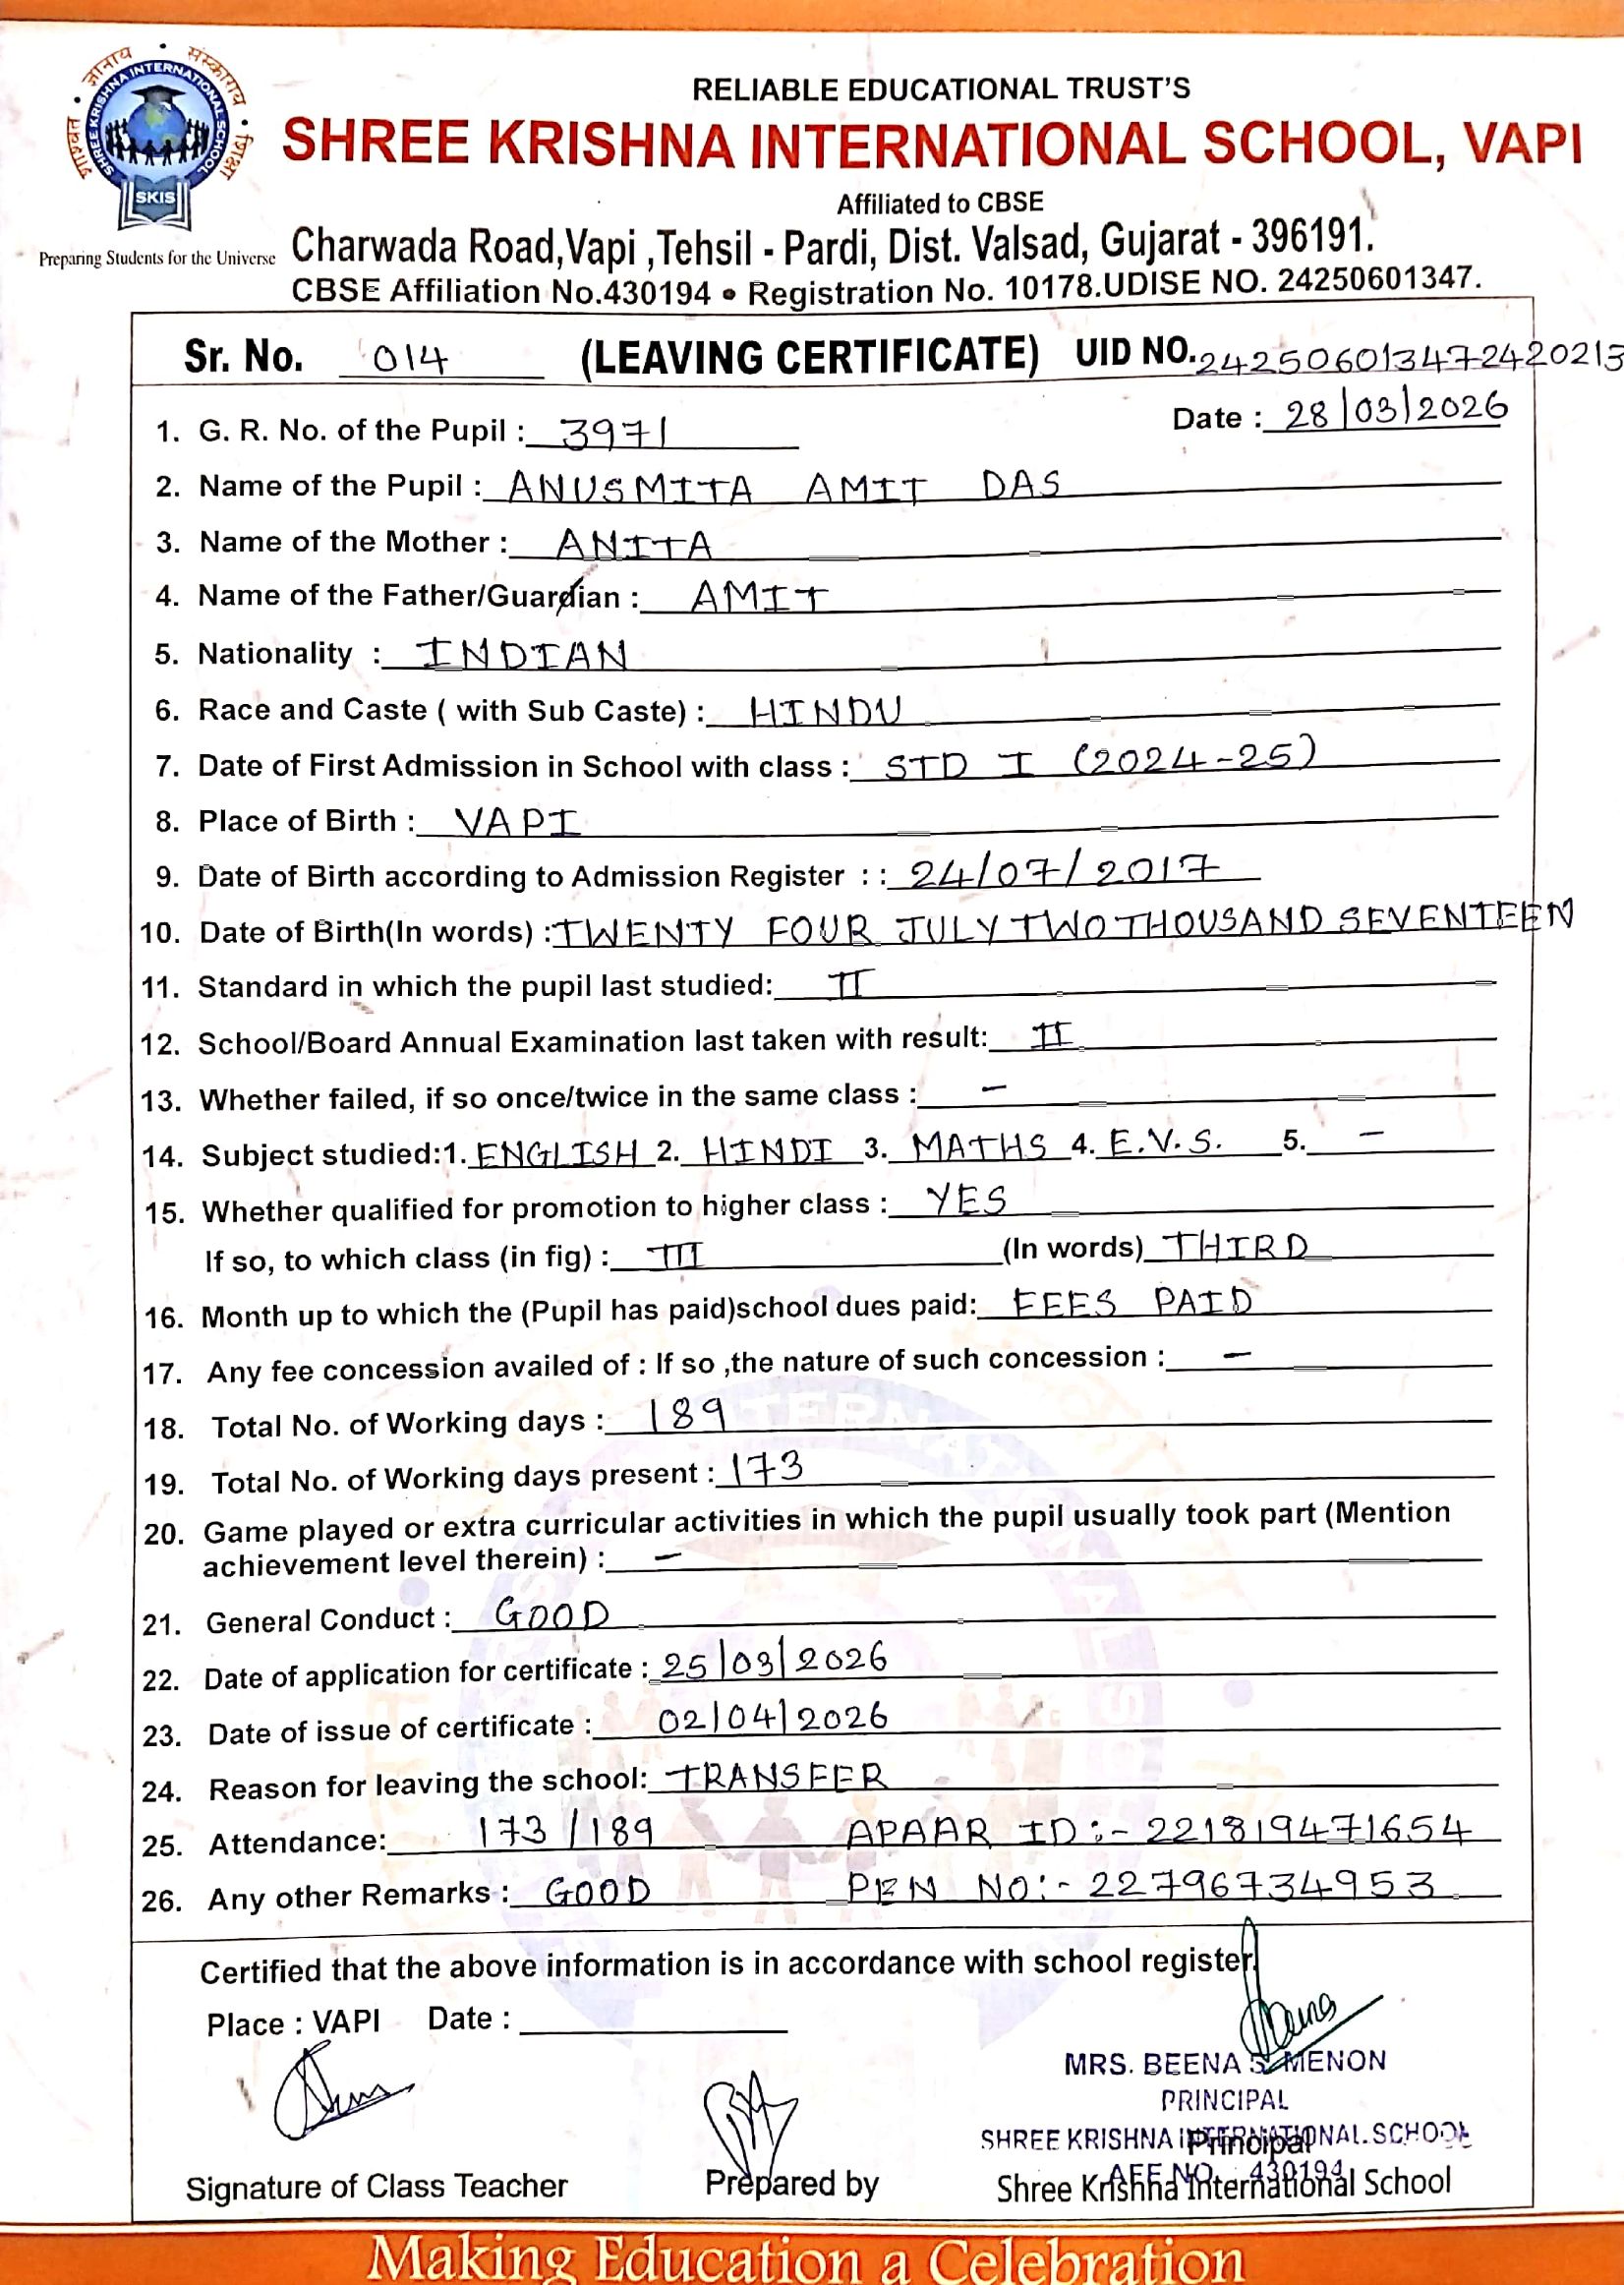 ज्ञानाय • संस्काराय • शिक्षा
SHREE KRISHNA INTERNATIONAL SCHOOL
SKIS
Preparing Students for the Universe
RELIABLE EDUCATIONAL TRUST'S
SHREE KRISHNA INTERNATIONAL SCHOOL, VAPI
Affiliated to CBSE
Charwada Road,Vapi ,Tehsil - Pardi, Dist. Valsad, Gujarat - 396191.
CBSE Affiliation No.430194 • Registration No. 10178.UDISE NO. 24250601347.
Sr. No. 014 (LEAVING CERTIFICATE) UID NO. 242506013472420213
Date : 28/03/2026
1. G. R. No. of the Pupil : 3971
2. Name of the Pupil : ANUSMITA AMIT DAS
3. Name of the Mother : ANITA
4. Name of the Father/Guardian : AMIT
5. Nationality : INDIAN
6. Race and Caste ( with Sub Caste) : HINDU
7. Date of First Admission in School with class : STD I (2024-25)
8. Place of Birth : VAPI
9. Date of Birth according to Admission Register : : 24/07/2017
10. Date of Birth(In words) : TWENTY FOUR JULY TWO THOUSAND SEVENTEEN
11. Standard in which the pupil last studied: II
12. School/Board Annual Examination last taken with result: II
13. Whether failed, if so once/twice in the same class : –
14. Subject studied:1. ENGLISH 2. HINDI 3. MATHS 4. E.V.S. 5. –
15. Whether qualified for promotion to higher class : YES
If so, to which class (in fig) : III (In words) THIRD
16. Month up to which the (Pupil has paid)school dues paid: FEES PAID
17. Any fee concession availed of : If so ,the nature of such concession : –
18. Total No. of Working days : 189
19. Total No. of Working days present : 173
20. Game played or extra curricular activities in which the pupil usually took part (Mention
achievement level therein) : –
21. General Conduct : GOOD
22. Date of application for certificate : 25/03/2026
23. Date of issue of certificate : 02/04/2026
24. Reason for leaving the school: TRANSFER
25. Attendance: 173/189 APAAR ID:- 221819471654
26. Any other Remarks : GOOD PEN NO:- 22796734953
Certified that the above information is in accordance with school register.
Place : VAPI Date :
MRS. BEENA S. MENON
PRINCIPAL
SHREE KRISHNA INTERNATIONAL SCHOOL
Principal
AFF NO. 430194
Shree Krishna International School
Signature of Class Teacher
Prepared by
Making Education a Celebration